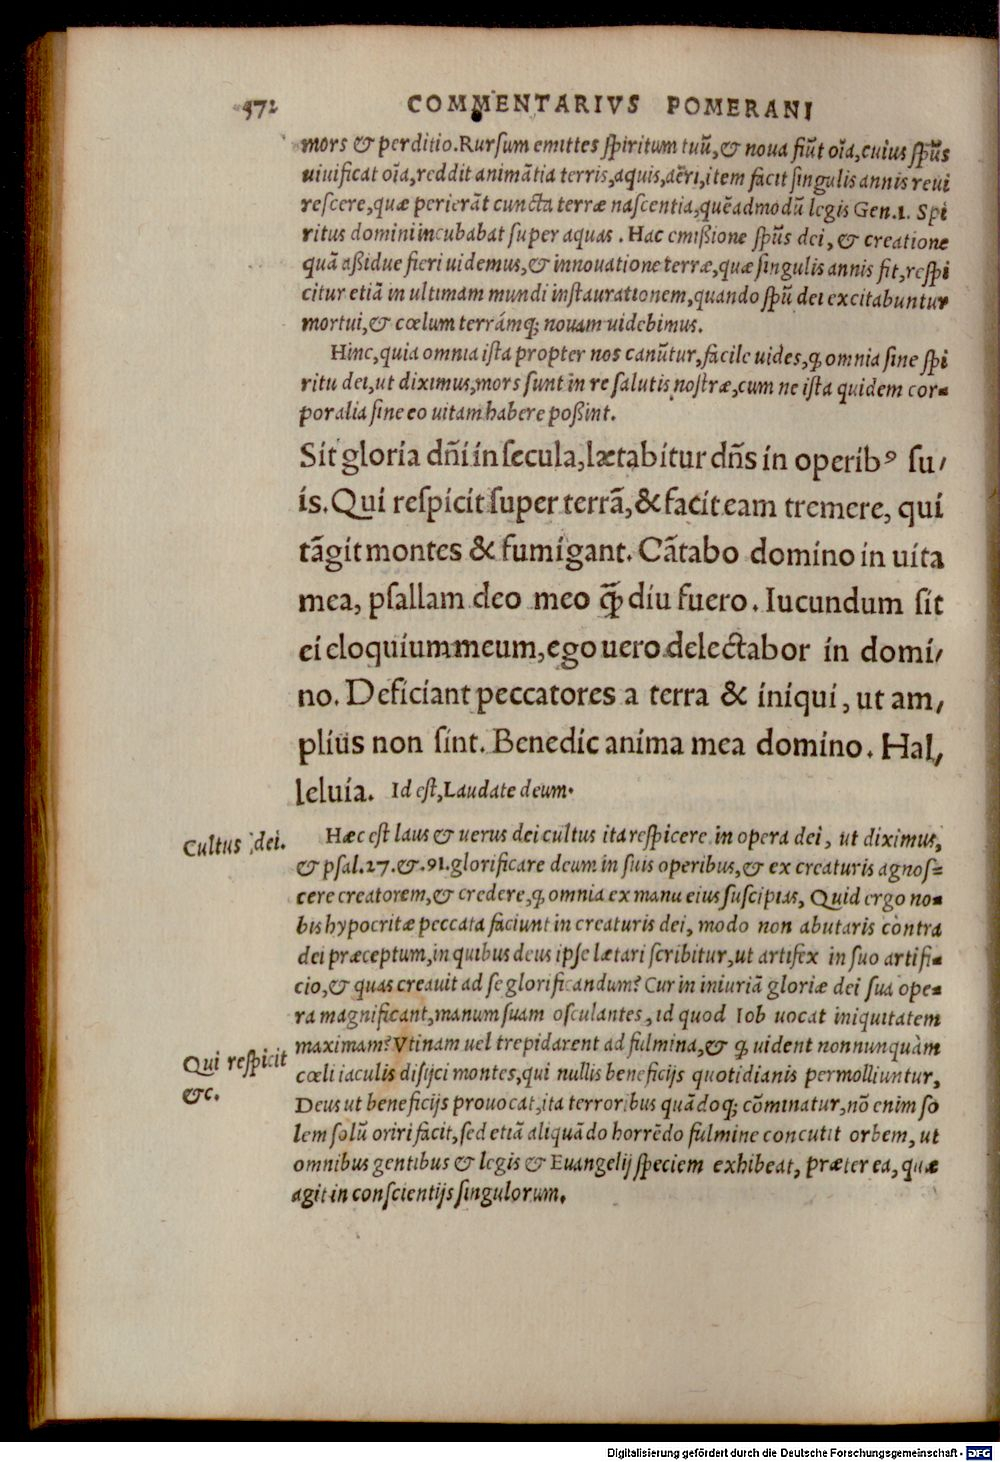 572 COMMENTARIVS POMERANI
mors & perditio. Rursum emittes spiritum tuũ, & noua fiũt oĩa, cuius spũs
uiuificat oĩa, reddit animãtia terris, aquis, aëri, item facit singulis annis reui
rescere, quæ perierãt cuncta terræ nascentia, quẽadmodũ legis Gen.1. Spi
ritus domini incubabat super aquas. Hac emißione spũs dei, & creatione
quã aßidue fieri uidemus, & innouatione terræ, quæ singulis annis fit, respi
citur etiã in ultimam mundi instaurationem, quando spũ dei excitabuntur
mortui, & cœlum terrámq; nouam uidebimus.
Hinc, quia omnia ista propter nos canũtur, facile uides, ꝙ omnia sine spi
ritu dei, ut diximus, mors sunt in re salutis nostræ, cum ne ista quidem cor-
poralia sine eo uitam habere poßint.
Sit gloria dñi in secula, lætabitur dñs in operibꝰ su/
is. Qui respicit super terrã, & facit eam tremere, qui
tãgit montes & fumigant. Cãtabo domino in uita
mea, psallam deo meo q̃ꝫdiu fuero. Iucundum sit
ei eloquium meum, ego uero delectabor in domi/
no. Deficiant peccatores a terra & iniqui, ut am/
plius non sint. Benedic anima mea domino. Hal/
leluia. Id est, Laudate deum.
Cultus dei.
Hæc est laus & uerus dei cultus ita respicere in opera dei, ut diximus,
& psal.27.&.91. glorificare deum in suis operibus, & ex creaturis agnos=
cere creatorem, & credere, ꝙ omnia ex manu eius suscipias, Quid ergo no-
bis hypocritæ peccata faciunt in creaturis dei, modo non abutaris contra
dei præceptum, in quibus deus ipse lætari scribitur, ut artifex in suo artifi-
cio, & quas creauit ad se glorificandum? Cur in iniuriã gloriæ dei sua ope-
ra magnificant, manum suam osculantes, id quod Iob uocat iniquitatem
maximam? Vtinam uel trepidarent ad fulmina, & ꝙ uident nonnunquàm
Qui respicit
&c.
cœli iaculis disijci montes, qui nullis beneficijs quotidianis permolliuntur,
Deus ut beneficijs prouocat, ita terroribus quãdoq; cõminatur, nõ enim so
lem solũ oriri facit, sed etiã aliquãdo horrẽdo fulmine concutit orbem, ut
omnibus gentibus & legis & Euangelij speciem exhibeat, præter ea, quæ
agit in conscientijs singulorum.
Digitalisierung gefördert durch die Deutsche Forschungsgemeinschaft - DFG